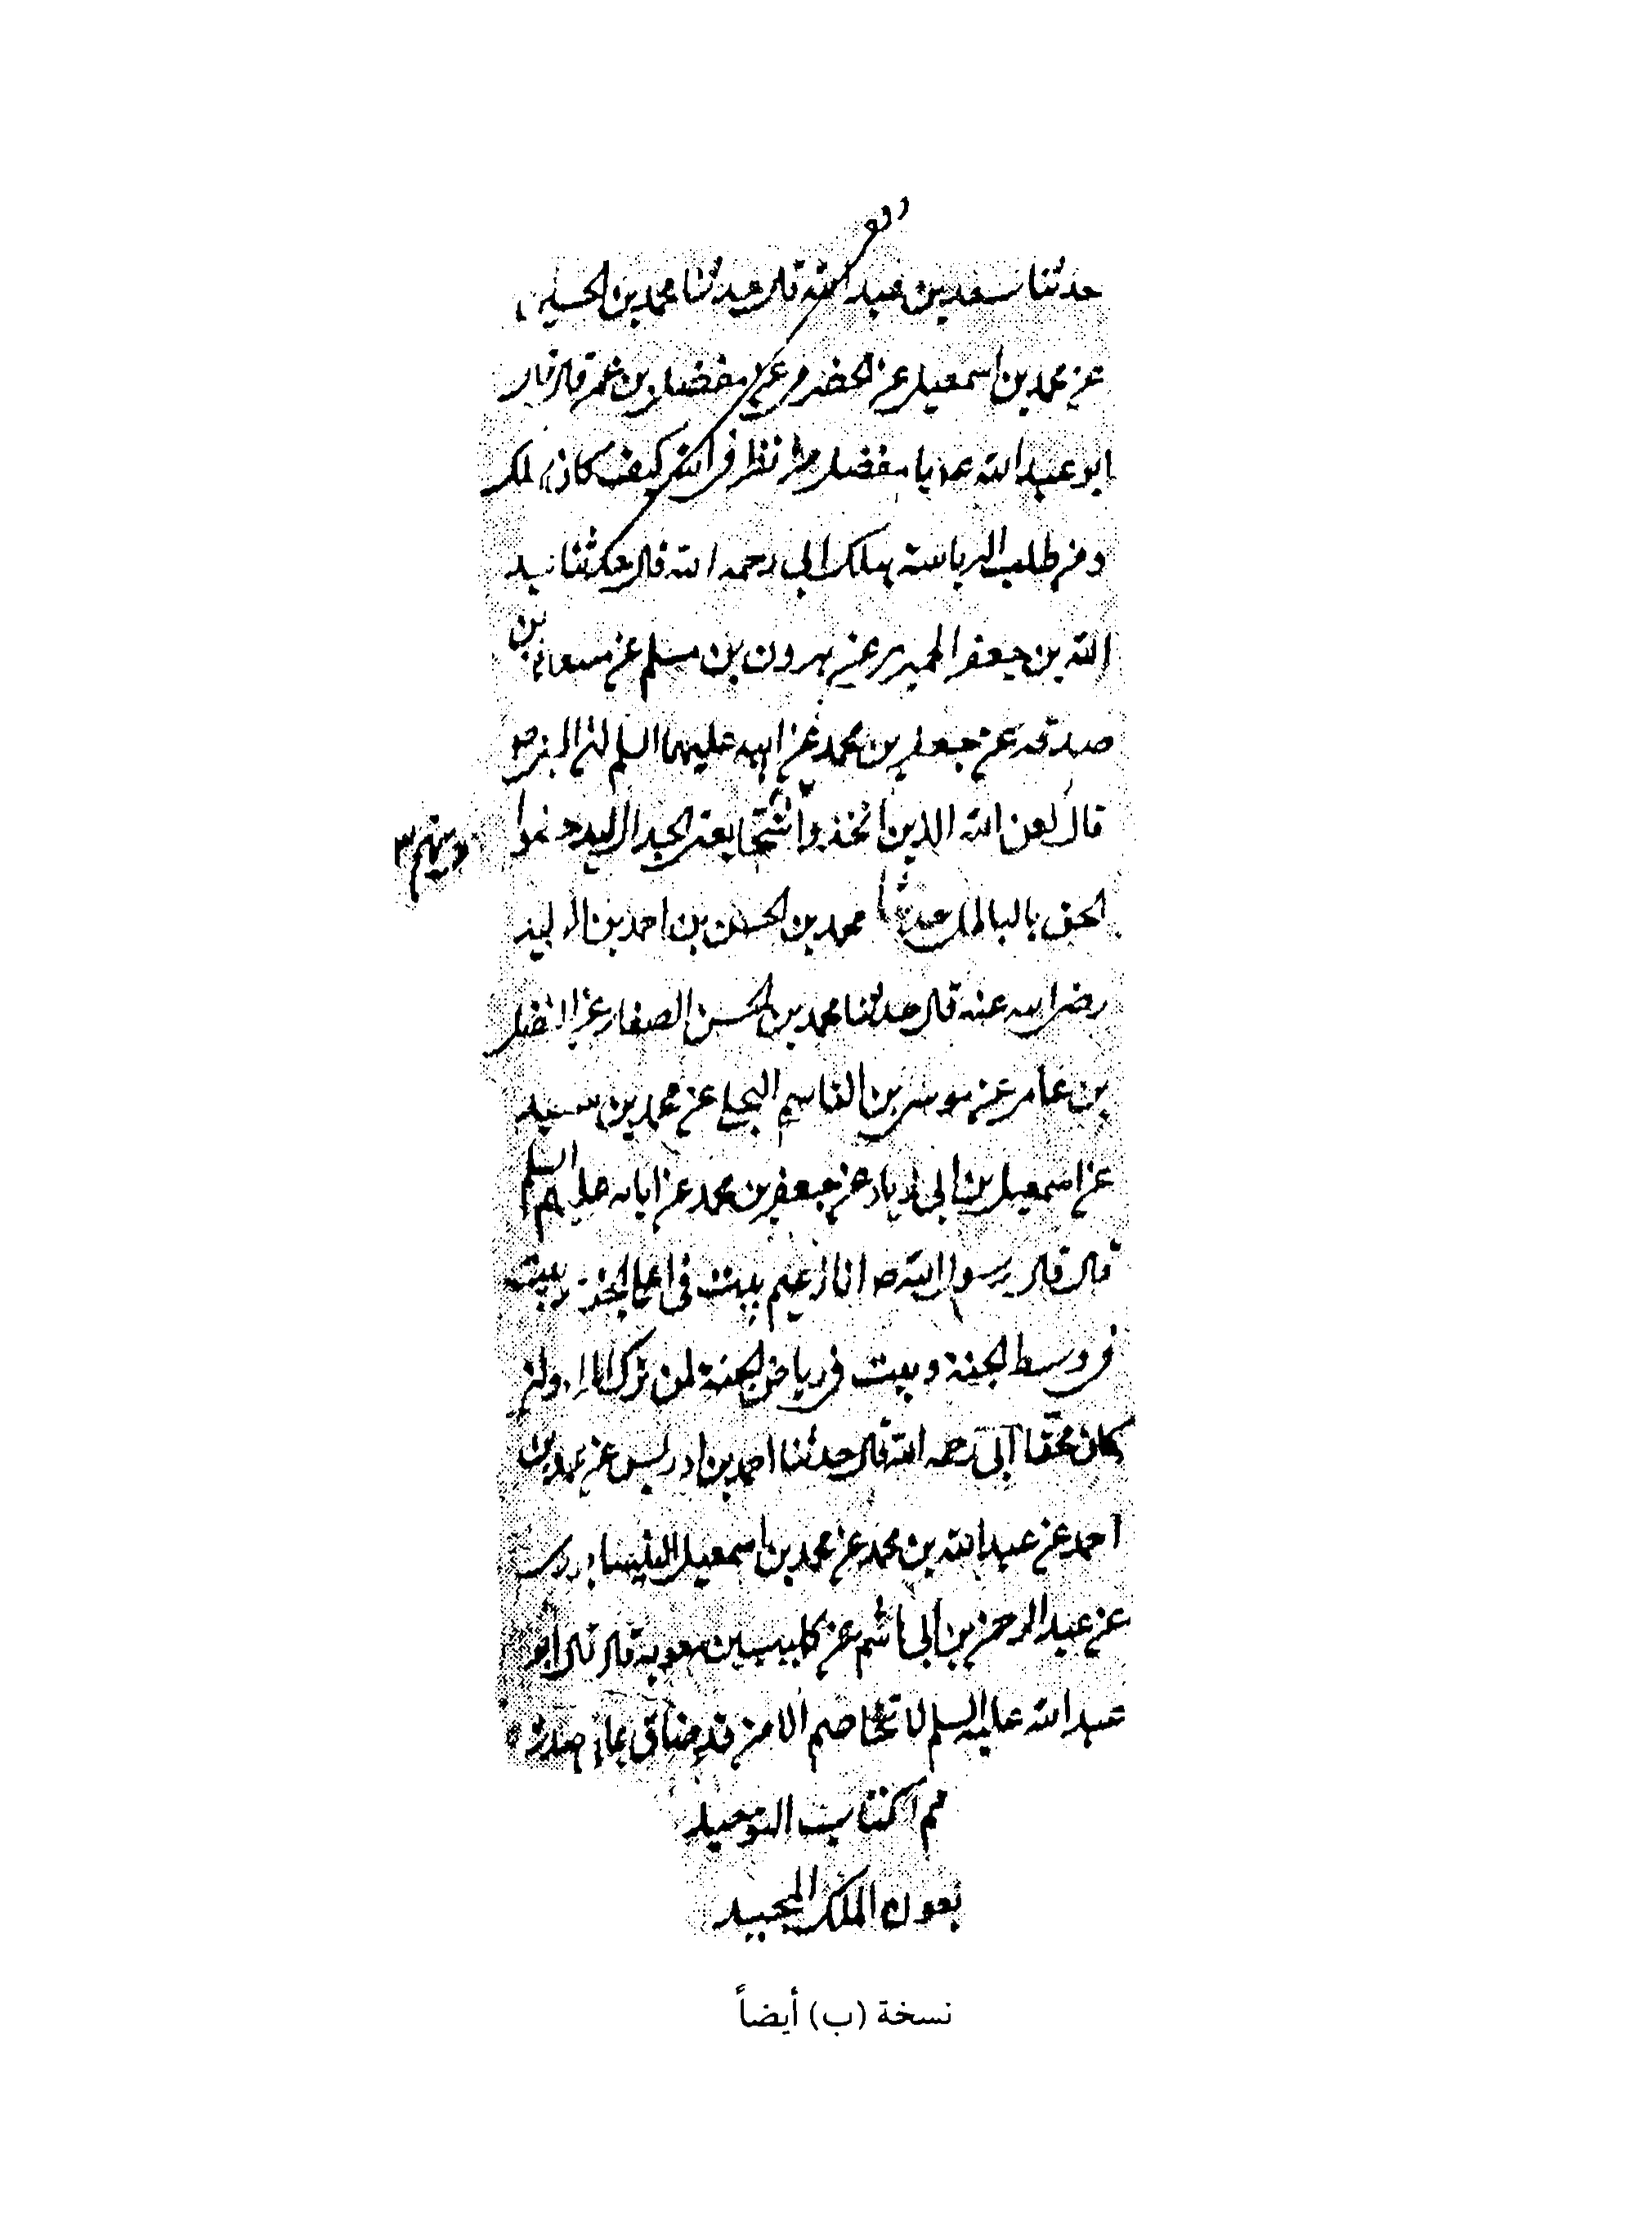 حدثنا سعد بن عبد الله قال حدثنا محمد بن الحسين
عن محمد بن اسمعيل عن الحضرمي عن مفضل بن عمر قال قال
ابو عبد الله ع يا مفضل من نظر في الله كيف كان هلك
و من طلب الرياسة هلك ابي رحمه الله قال حدثنا عبد
الله بن جعفر الحميري عن هرون بن مسلم عن مسعدة بن
صدقه عن جعفر بن محمد عن ابيه عليهما السلم ان النبي ص
قال لعن الله الذين اتخذوا يعني الجدال ليدحضوا
الحق بالباطل حدثنا محمد بن الحسن بن احمد بن الوليد
رضي الله عنه قال حدثنا محمد بن الحسن الصفار عن الفضل
بن عامر عن موسى بن القاسم البجلي عن محمد بن سعيد
عن اسمعيل بن ابي زياد عن جعفر بن محمد عن ابائه عليهم السلم
قال قال رسول الله ص انا زعيم ببيت في اعلى الجنة و بيت
في وسط الجنة و بيت في رياض الجنة لمن ترك المراء و ان
كان محقا ابي رحمه الله قال حدثنا احمد بن ادريس عن محمد بن
احمد عن عبد الله بن محمد عن محمد بن اسمعيل النيسابوري
عن عبد الرحمن بن ابي هاشم عن كليب بن معوية قال قال ابو
عبد الله عليه السلم لا تخاصم الا من قد ضاق بما في صدره
تم كتاب التوحيد
بعون الملك المجيد
نسخة (ب) أيضاً